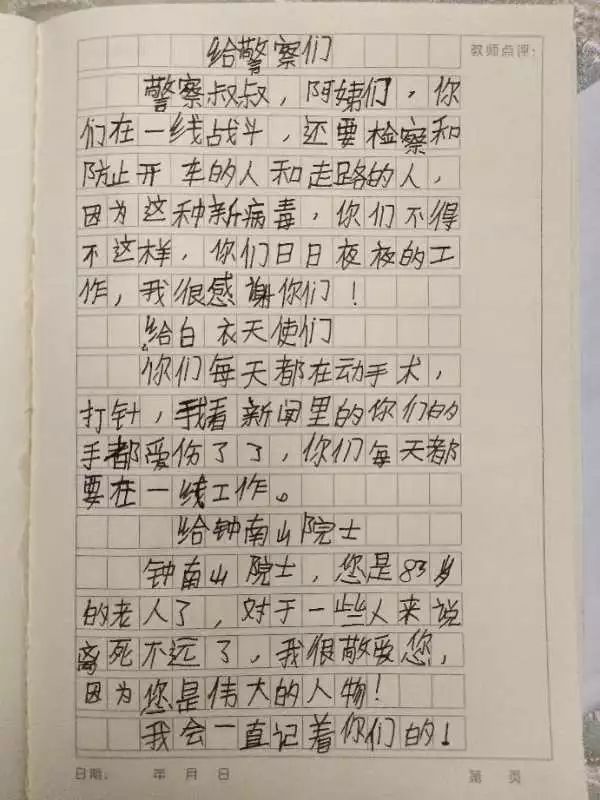 给警察们
教师点评:
警察叔叔，阿姨们，你
们在一线战斗，还要检察和
防止开车的人和走路的人，
因为这种新病毒，你们不得
不这样，你们日日夜夜的工
作，我很感谢你们！
给白衣天使们
你们每天都在动手术，
打针，我看新闻里的你们的
手都受伤了了，你们每天都
要在一线工作。
给钟南山院士
钟南山院士，您是83岁
的老人了，对于一些人来说
离死不远了，我很敬爱您，
因为您是伟大的人物！
我会一直记着你们的！
日期： 年 月 日 第 页